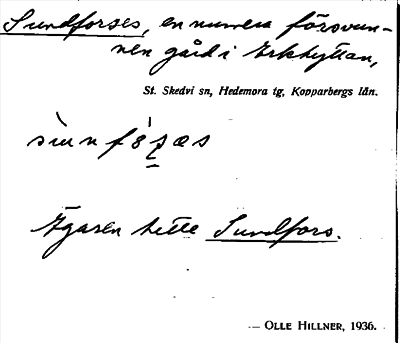 Sundforses, en numera försvun-
nen gård i Erkhyttan,
St. Skedvi sn, Hedemora tg, Kopparbergs län.
Ägaren hette Sundfors.
— OLLE HILLNER, 1936.